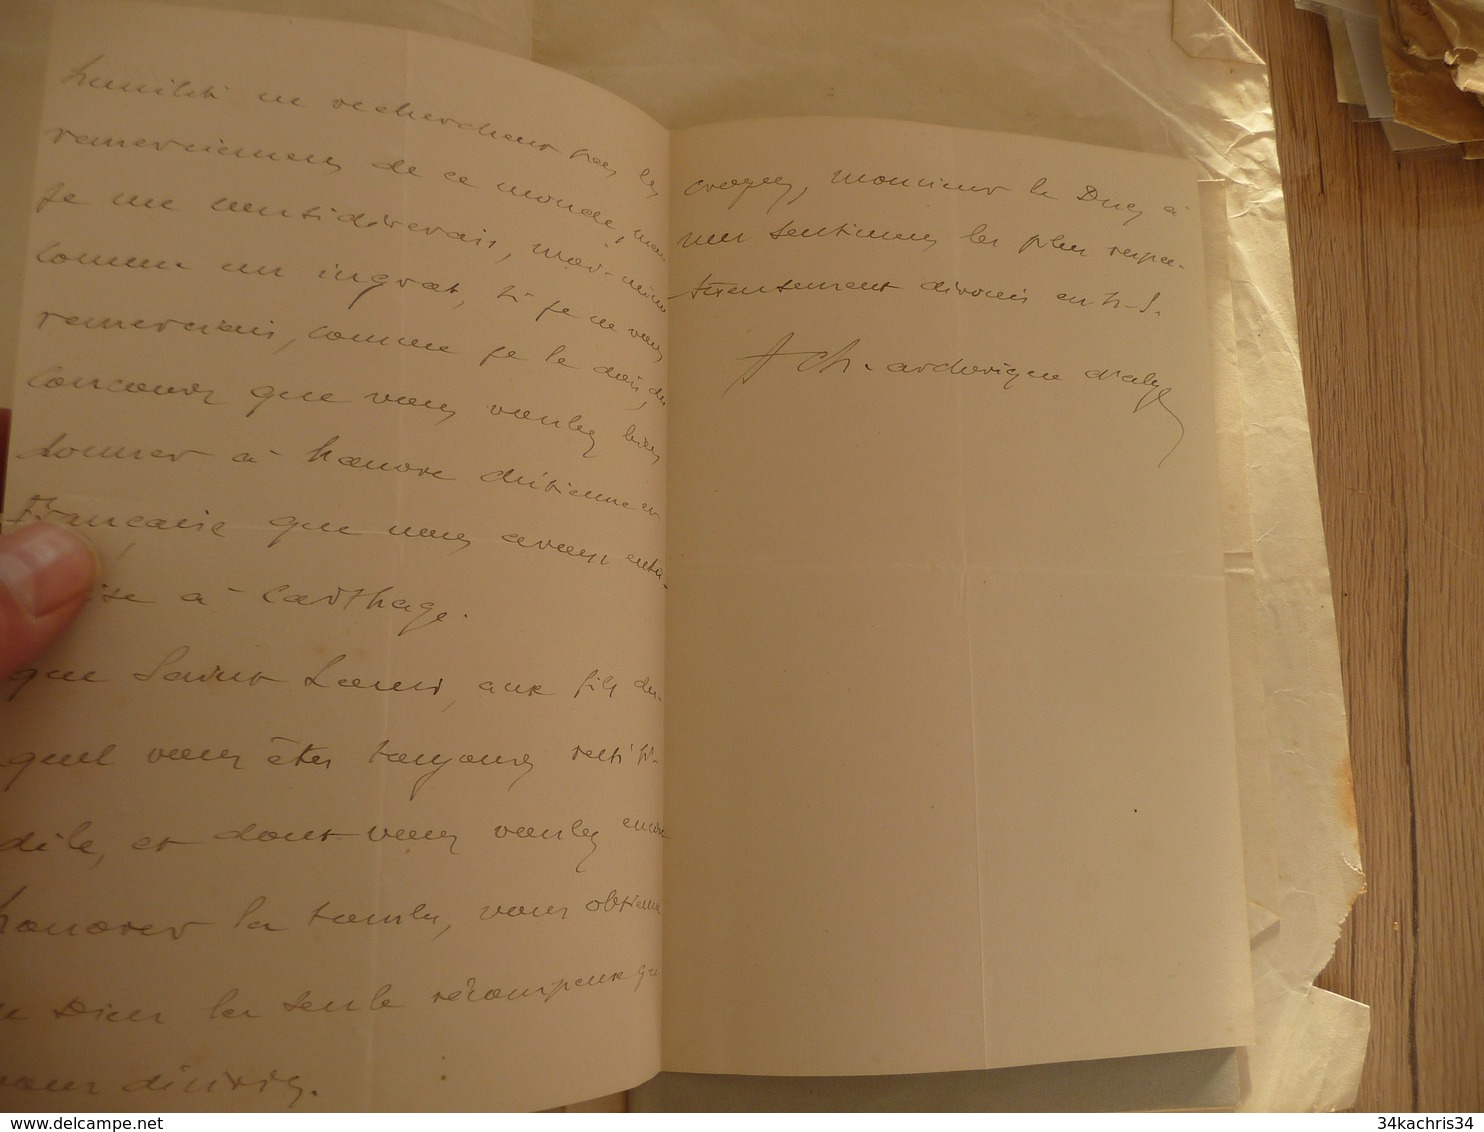 humilité ne recherchent pas les
remerciemens de ce monde, mais
je me considérerais, moi-même
comme un ingrat, si je ne vous
remerciais, comme je le dois, du
concours que vous voulez bien
donner à l'œuvre chrétienne et
Française que nous avons entre-
prise à Carthage.
que Saint Louis, aux fils du-
quel vous êtes toujours resté fi-
dèle, et dont vous voulez encore
honorer la tombe, vous obtienne
de Dieu la seule récompense que
vous désiriez.
croyez, monsieur le Duc, à
mes sentimens les plus respec-
tueusement dévoués en N-S.
† Ch. archevêque d'alger
delcampe.net
34kachris34